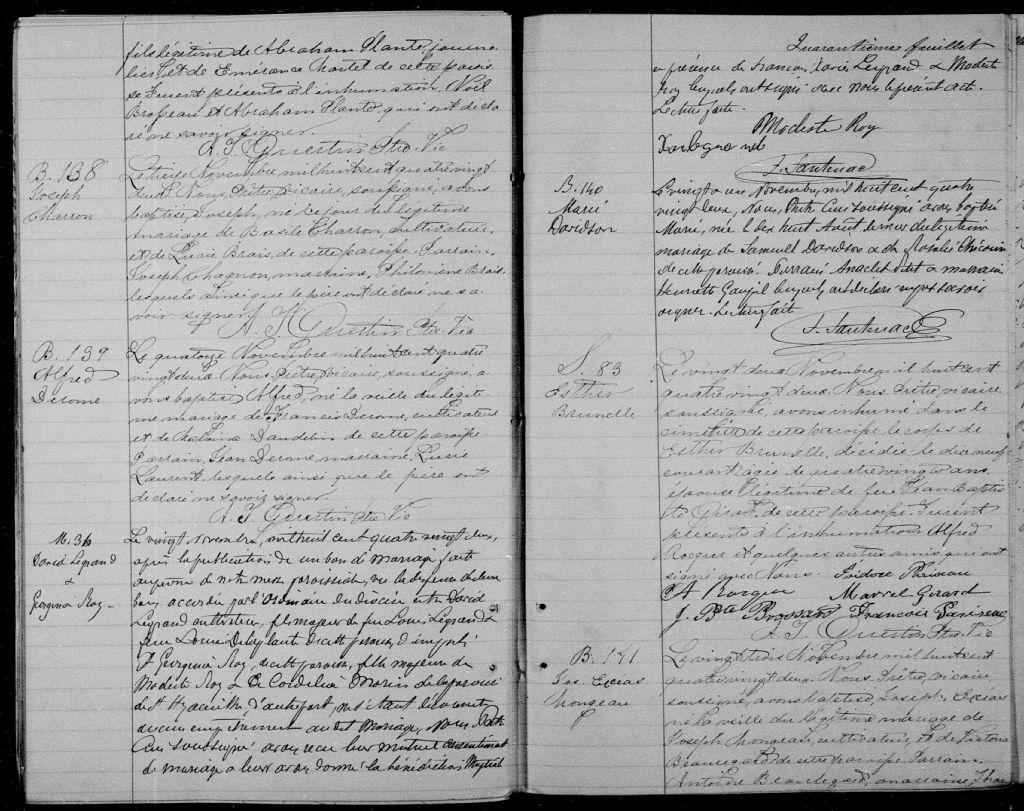 fils légitime de Abraham Plante, journa-
lier et de Emérance Martel de cette parois-
se. Furent présents à l'inhumation, Noël
Brosseau et Abraham Plante qui ont décla-
ré ne savoir signer.
A. J. Quertin Ptre. Vic
B. 138
Joseph
Charron
Le treize Novembre mil huit cent quatre vingt
deux Nous, Prêtre, vicaire, soussigné, avons
baptisé, Joseph, né ce jour du légitime
mariage de Basile Charron, cultivateur,
et de Lucie Brais, de cette paroisse. Parrain,
Joseph Chagnon, marraine, Philomène Brais
lesquels ainsi que le père ont déclaré ne sa-
voir signer. A. J. Quertin Ptre. Vic
B. 139
Alfred
Derome
Le quatorze Novembre mil huit cent quatre
vingt deux Nous, Prêtre, vicaire, soussigné, a-
vons baptisé Alfred, né la veille du légiti-
me mariage de Francis Derome, cultivateur
et de Dandelin de cette paroisse.
Parrain, Jean Derome, marraine, Lucie
Laurent, lesquels ainsi que le père ont
déclaré ne savoir signer.
A. J. Quertin Ptre Vic
M. 36
David Legrand
&
Georginia Roy
Le vingt novembre, mil huit cent quatre vingt deux,
après la publication de un ban de mariage fait
au prone de notre messe paroissiale, vu la dispense de deux
bans accordée par l'Ordinaire du Diocèse entre David
Legrand cultivateur, fils majeur de feu Louis Legrand &
feue Louise de cette paroisse, d'une part;
& Georginia Roy, de cette paroisse, fille majeure de
Modeste Roy & de Cordelia Morin de la paroisse
de St Hyacinthe d'autre part, ne s'étant découvert
aucun empêchement au dit Mariage, Nous, Prêtre
Curé soussigné avons reçu leur mutuel consentement
de mariage & leur avons donné la bénédiction Nuptiale
Quarantième feuillet
en présence de François Xavier Legrand & Modeste
Roy lesquels ont signé avec nous le présent acte.
Lecture faite.
Modeste Roy
J. Sautenac
B. 140
Marie
Davidson
Le vingt & un Novembre, mil huit cent quatre
vingt deux, Nous, Prêtre Curé soussigné avons baptisé
Marie, née le dix huit Aout dernier du légitime
mariage de Samuell Davidson & de Rosalie Chicoine
de cette paroisse. Parrain Anaclet Petit & marraine
Henriette lesquels ont déclaré ne pas savoir
signer. Lecture faite
J. Sautenac
S. 83
Esther
Brunelle
Le vingt deux Novembre mil huit cent
quatre vingt deux. Nous, Prêtre vicaire
soussigné, avons inhumé dans le
cimetière de cette paroisse le corps de
Esther Brunelle, décédée le dix neuf
courant agée de quatre vingt ans,
épouse légitime de feu Jean Baptis-
te Girard, de cette paroisse. Furent
présents à l'inhumation Alfred
Rocque et quelques autres amis qui ont
signé avec Nous. Isidore
A Rocque Marcel Girard
J. Bte François
A. J. Quertin Ptre Vic
B. 141
Jos. Exeias
Mongeau
Le vingt trois Novembre mil huit cent
quatre vingt deux. Nous, Prêtre, vicaire,
soussigné, avons baptisé, Joseph, Exeias
né la veille du légitime mariage de
Joseph Mongeau, cultivateur, et de Victoria
Beauregard de cette paroisse. Parrain,
Antoine Beauregard, marraine,